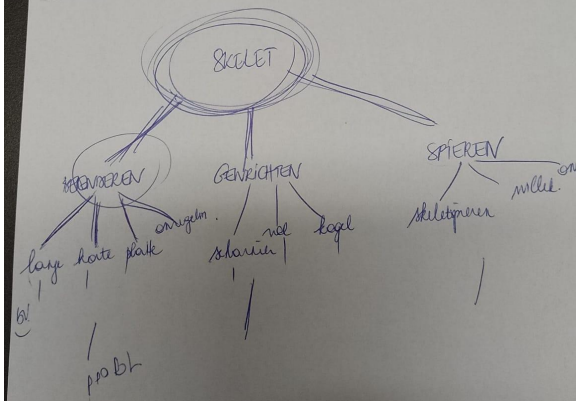 SKELET
BEENDEREN
GEWRICHTEN
SPIEREN
lange
korte
platte
onregelm.
scharnier
kogel
skeletspieren
willek.
on
bv.